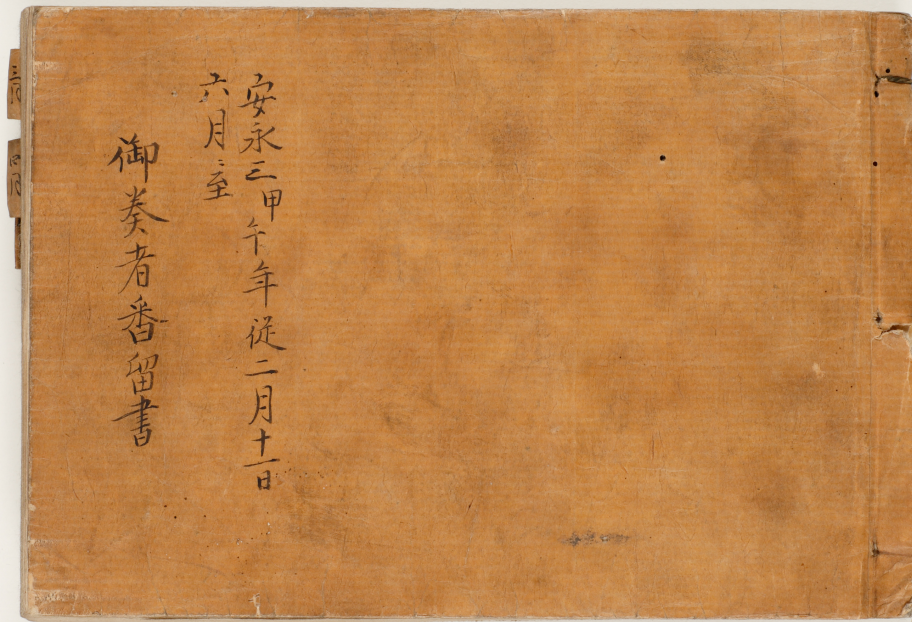 安永三甲午年従二月十一日
六月ニ至
御奏者番留書
三月
四月